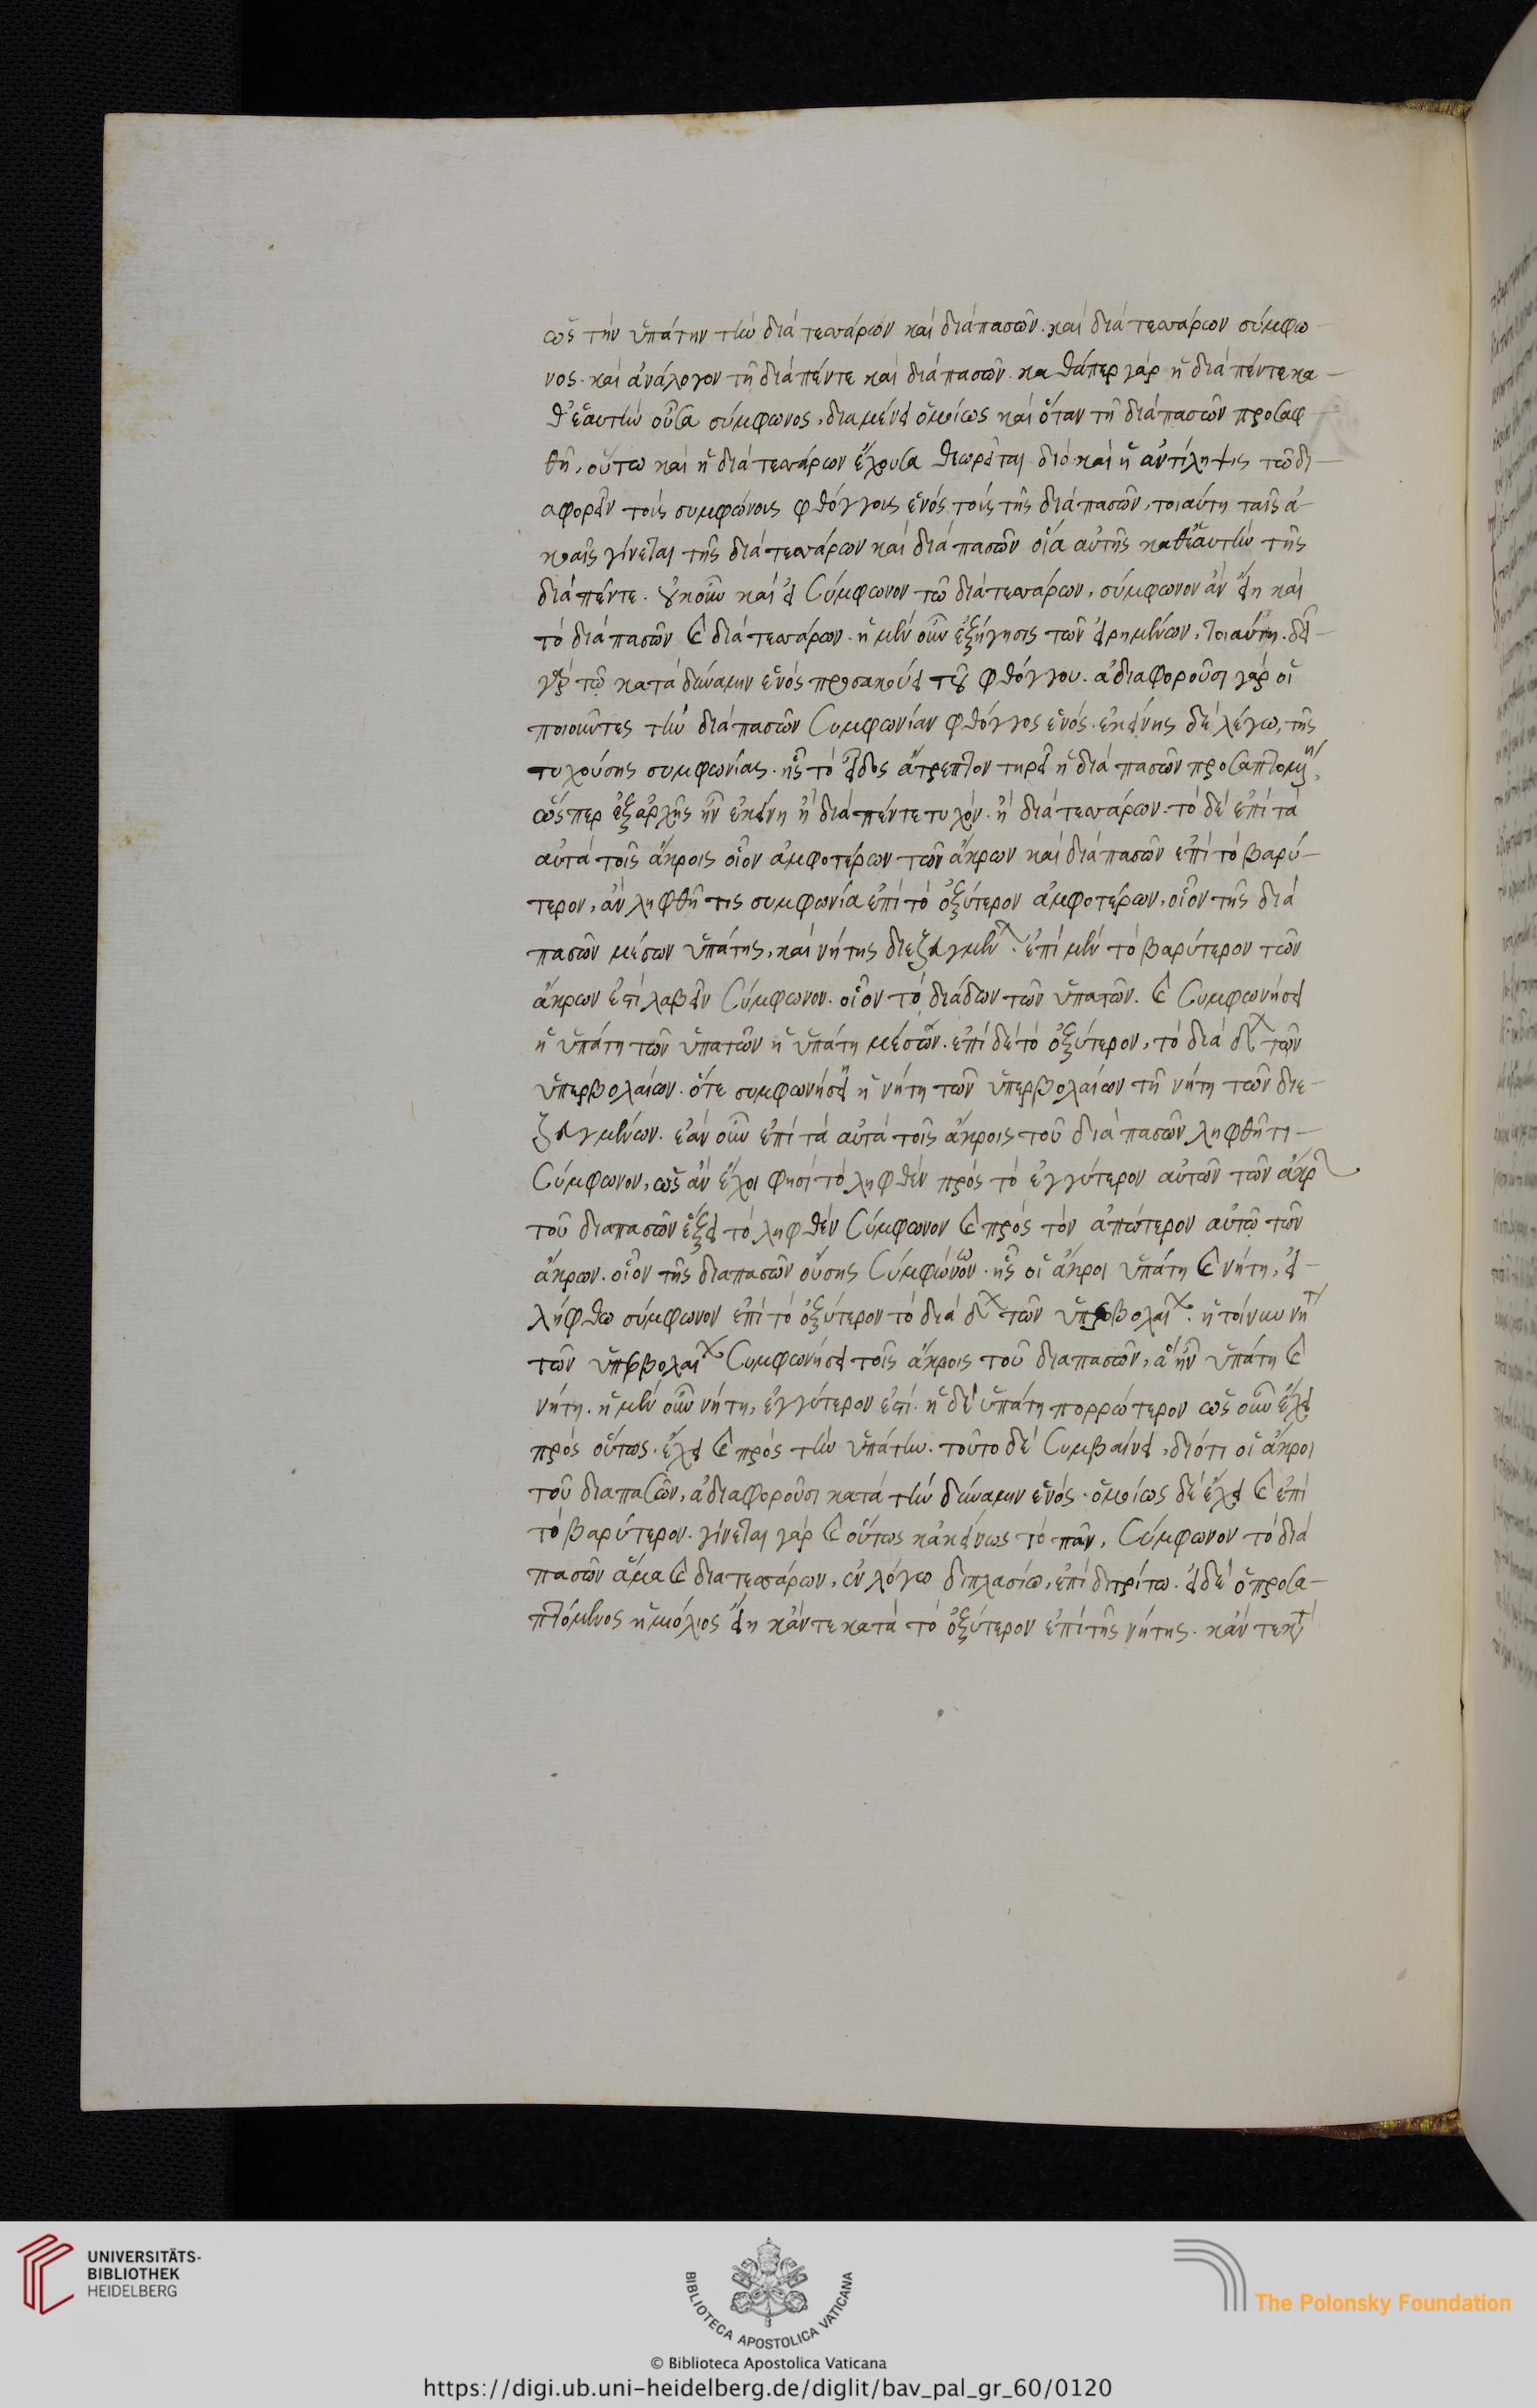 ὡς τὴν ὑπάτην τὴν διὰ τεσσάρων καὶ διὰ πασῶν. καὶ διὰ τεσσάρων σύμφω
νος. καὶ ἀνάλογον τῆ διὰ πέντε καὶ διὰ πασῶν. καθάπερ γὰρ ἡ διὰ πέντε κα
θ' ἑαυτὴν οὖσα σύμφωνος, διαμένει ὁμοίως καὶ ὅταν τῆ διὰ πασῶν προσαφ
θῆ, οὕτω καὶ ἡ διὰ τεσσάρων ἔχουσα θεωρεῖται διὸ καὶ ἡ ἀντίληψις τῶ δι
αφορεῖν τοῖς συμφώνοις φθόγγοις ἑνὸς τοῖς τῆς διὰ πασῶν, τοιαύτη ταῖς ἀ
κοαῖς γίνεται τῆς διὰ τεσσάρων καὶ διὰ πασῶν οἵα αὐτῆς καθ' ἑαυτὴν τῆς
διὰ πέντε. οὐκοῦν καὶ εἰ σύμφωνον τῶ διὰ τεσσάρων, σύμφωνον ἂν εἴη καὶ
τὸ διὰ πασῶν καὶ διὰ τεσσάρων. ἡ μὲν οὖν ἐξήγησις τῶν εἰρημένων, τοιαύτη. δεῖ
γὰρ τῷ κατὰ δύναμιν ἑνὸς προσακούει τοῦ φθόγγου. ἀδιαφοροῦσι γὰρ οἱ
ποιοῦντες τὴν διὰ πασῶν συμφωνίαν φθόγγος ἑνός. ἐκείνης δὲ λέγω, τῆς
τυχούσης συμφωνίας. ἧς τὸ εἶδος ἄτρεπτον τηρεῖ ἡ διὰ πασῶν προσαπτομένη,
ὥσπερ ἐξαρχῆς ἦν ἐκείνη ἢ διὰ πέντε τυχὸν. ἢ διὰ τεσσάρων. τὸ δὲ ἐπὶ τὰ
αὐτὰ τοῖς ἄκροις οἷον ἀμφοτέρων τῶν ἄκρων καὶ διὰ πασῶν ἐπὶ τὸ βαρύ
τερον, ἂν ληφθῆ τις συμφωνία ἐπὶ τὸ ὀξύτερον ἀμφοτέρων, οἷον τῆς διὰ
πασῶν μέσων ὑπάτης, καὶ νήτης διεζευγμένων. ἐπὶ μὲν τὸ βαρύτερον τῶν
ἄκρων ἐστὶ λαβεῖν σύμφωνον. οἷον τὸ διὰ δων τῶν ὑπατῶν. καὶ συμφωνήσει
ἡ ὑπάτη τῶν ὑπατῶν ἡ ὑπάτη μέσων. ἐπὶ δὲ τὸ ὀξύτερον, τὸ διὰ δων τῶν
ὑπερβολαίων. ὅτε συμφωνήσει ἡ νήτη τῶν ὑπερβολαίων τῆ νήτη τῶν διε
ζευγμένων. ἐὰν οὖν ἐπὶ τὰ αὐτὰ τοῖς ἄκροις τοῦ διὰ πασῶν ληφθῆ τι
σύμφωνον, ὡς ἂν ἔχοι φησὶ τὸ ληφθὲν πρὸς τὸ ἐγγύτερον αὐτῶν τῶν ἄκρων
τοῦ διαπασῶν ἕξει τὸ ληφθὲν σύμφωνον καὶ πρὸς τὸν ἀπώτερον αὐτῷ τῶν
ἄκρων. οἷον τῆς διαπασῶν οὔσης συμφώνων. ἧς οἱ ἄκροι ὑπάτη καὶ νήτη, εἰ
λήφθω σύμφωνον ἐπὶ τὸ ὀξύτερον τὸ διὰ δων τῶν ὑπερβολαίων. ἡ τοίνυν νήτη
τῶν ὑπερβολαίων συμφωνήσει τοῖς ἄκροις τοῦ διαπασῶν, ἃ ἦν ὑπάτη καὶ
νήτη. ἡ μὲν οὖν νήτη, ἐγγύτερον ἐστί. ἡ δὲ ὑπάτη πορρώτερον ὡς οὖν ἔχει
πρὸς οὕτως. ἔχει καὶ πρὸς τὴν ὑπάτην. τοῦτο δὲ συμβαίνει, διότι οἱ ἄκροι
τοῦ διαπασῶν, ἀδιαφοροῦσι κατὰ τὴν δύναμιν ἑνός. ὁμοίως δὲ ἔχει καὶ ἐπὶ
τὸ βαρύτερον. γίνεται γὰρ καὶ οὕτως κἀκείνως τὸ πᾶν, σύμφωνον τὸ διὰ
πασῶν ἅμα καὶ διατεσσάρων, ἐν λόγω διπλασίω, ἐπὶ διτρίτω. εἰ δὲ ὁ προσα
πτόμενος ἡμιόλιος εἴη κἄν τε κατὰ τὸ ὀξύτερον ἐπὶ τῆς νήτης. κἄν τε κατὰ
UNIVERSITÄTS-
BIBLIOTHEK
HEIDELBERG
BIBLIOTECA APOSTOLICA VATICANA
The Polonsky Foundation
© Biblioteca Apostolica Vaticana
https://digi.ub.uni-heidelberg.de/diglit/bav_pal_gr_60/0120